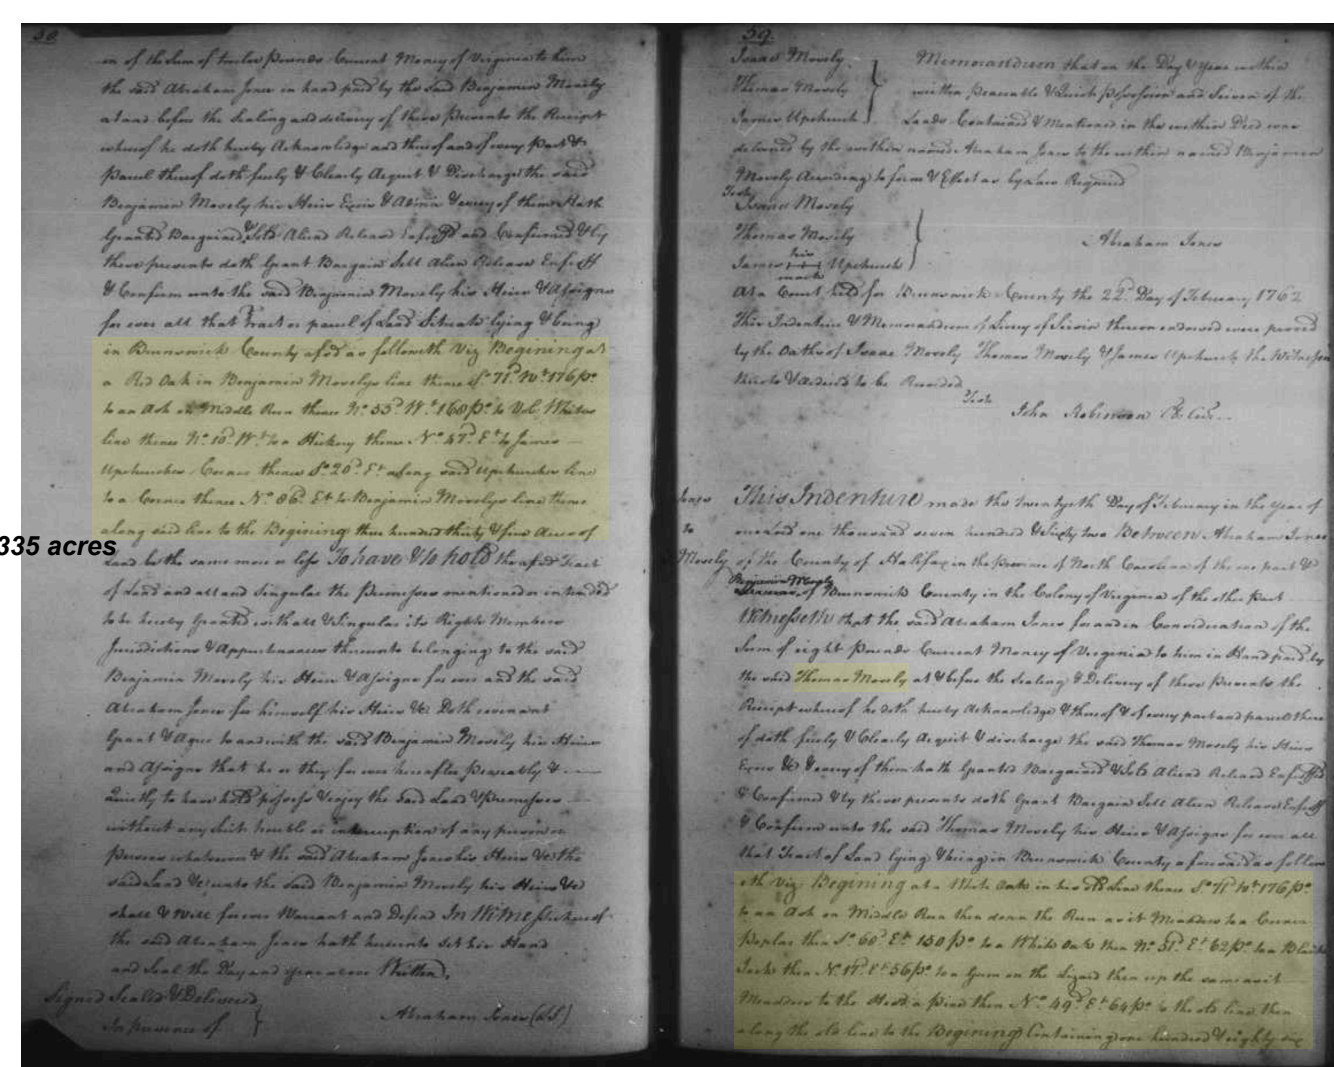 58.
on of the Sum of twelve Pounds Current Money of Virginia to him
the said Abraham Jones in hand paid by the said Benjamin Mosely
at and before the Sealing and delivery of these Presents the Receipt
whereof he doth hereby Acknowledge and thereof and of every Part &
Parcel thereof doth freely & Clearly Acquit & Discharge the said
Benjamin Mosely his Heirs Exrs & Admrs & every of them Hath
Granted Bargained & Sold Aliend Released Enfeoffd and Confirmed & by
these presents doth Grant Bargain Sell Alien Release Enfeoff
& Confirm unto the said Benjamin Mosely his Heirs & Assigns
for ever all that Tract or parcel of Land Situate lying & being
in Brunswick County afsd as followeth Viz Begining at
a Red Oak in Benjamin Moselys line thence So. 71d. Wt. 176 po.
to an Ash on Middle Run thence No. 55d. Wt. 160 po. to Whites
line thence No. 10d. Wt. to a Hickory thence No. 47d. Et. to James
Upchurches Corner thence So. 20d. Et. along said Upchurches line
to a Corner thence No. 86d. Et to Benjamin Moselys line thence
along said line to the Begining three hundred thirty & five Acres of
335 acres
Land be the same more or less To have & to hold the afsd Tract
of Land and all and Singular the Premisses mentioned or intended
to be hereby Granted with all & Singular its Rights Members
Jurisdictions & Appurtenances thereunto belonging to the said
Benjamin Mosely his Heirs & Assigns for ever and the said
Abraham Jones for himself his Heirs &c Doth covenant
Grant & Agree to and with the said Benjamin Mosely his Heirs
and Assigns that he or they for ever hereafter Peaceably &
Quietly to have hold possess & enjoy the said Land & Premisses
without any Suit trouble or interruption of any person or
Persons whatsoever & the said Abraham Jones his Heirs &c the
said Land &c unto the said Benjamin Mosely his Heirs &c
shall & Will forever Warrant and Defend In Witness whereof
the said Abraham Jones hath hereunto Set his Hand
and Seal the Day and year above Written.
Signed Sealed & Delivered
In presence of } Abraham Jones (LS)
59.
Isaac Mosely
Thomas Mosely
James Upchurch
Memorandum that on the Day & Year within
written Peaceable & Quiet Possession and Seisen of the
Lands Contained & Mentioned in the within Deed was
delivered by the within named Abraham Jones to the within named Benjamin
Mosely According to form & Effect as by Law Required
Teste
Isaac Mosely
Thomas Mosely
Abraham Jones
James his mark Upchurch
At a Court held for Brunswick County the 22d. Day of February 1762
This Indenture & Memorandum of Livery of Seisin thereon endorsed were proved
by the Oaths of Isaac Mosely Thomas Mosely & James Upchurch the Witnesses
thereto & ordered to be Recorded
Teste
John Robinson
Jones
to
Mosely
This Indenture made the twentyeth Day of February in the year of
one thousand seven hundred & Sixty two Between Abraham Jones
of the County of Halifax in the Province of North Carolina of the one part &
Benjamin Mosely
of Brunswick County in the Colony of Virginia of the other Part
Witnesseth that the said Abraham Jones for and in Consideration of the
Sum of eight Pounds Current Money of Virginia to him in Hand paid by
the said Thomas Mosely at & before the Sealing & Delivery of these Presents the
Receipt whereof he doth hereby Acknowledge & thereof & of every part and parcel there
of doth freely & Clearly Acquit & discharge the said Thomas Mosely his Heirs
Exrs &c & every of them hath Granted Bargained & Sold Aliend Released Enfeoffed
& Confirmed & by these presents doth Grant Bargain Sell Alien Release Enfeoff
& Confirm unto the said Thomas Mosely his Heirs & Assigns for ever all
that Tract of Land lying & being in Brunswick County aforesaid as follow
eth Viz Begining at a White Oak in his old line thence So. 71d. Wt. 176 po.
to an Ash on Middle Run then down the Run as it Meanders to a Corner
Poplar then So. 60d. Et. 150 po. to a White Oak then No. 51d. Et. 62 po. to a Black
Jack then No. 17d. Et. 56 po. to a Gum on the Lizard then up the same as it
Meanders to the Head a Pine then No. 49d. Et. 64 po. to the old line then
along the old line to the Begining Containing one hundred & eighty six